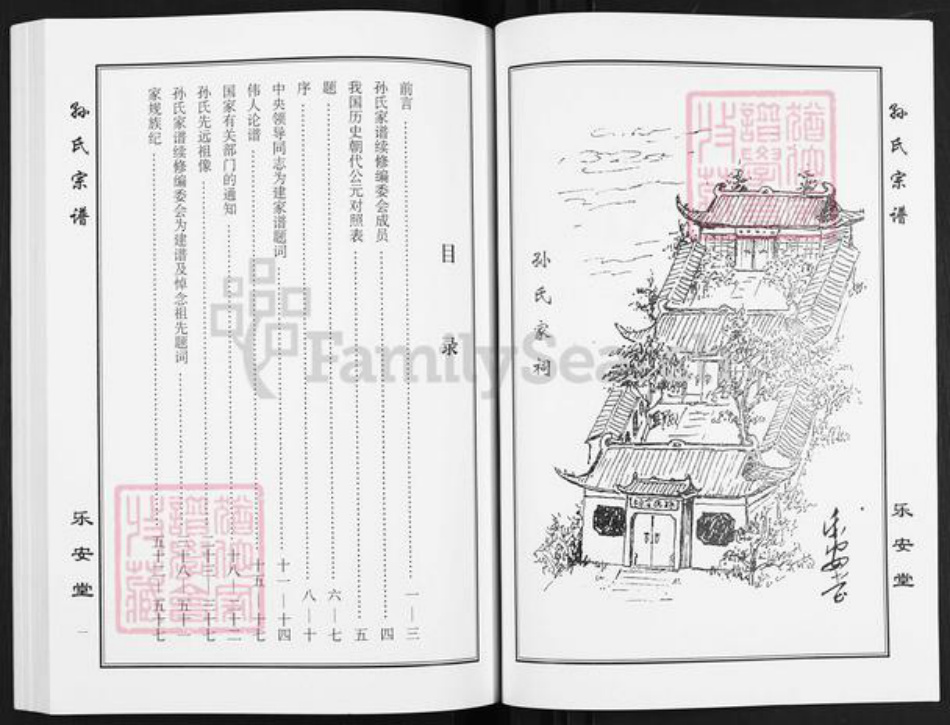 孙氏宗谱
乐安堂
孙氏家祠
乐安堂
目录
前言 一—三
孙氏家谱续修编委会成员 四
我国历史朝代公元对照表 五
题 六—七
序 八—十
中央领导同志为建家谱题词 十一—十四
伟人论谱 十五—十七
国家有关部门的通知 十八—二十二
孙氏先远祖像 二十三—三十七
孙氏家谱续修编委会为建谱及悼念祖先题词 三十八—五十一
家规族纪 五十二—五十七
孙氏宗谱
乐安堂
一
FamilySea